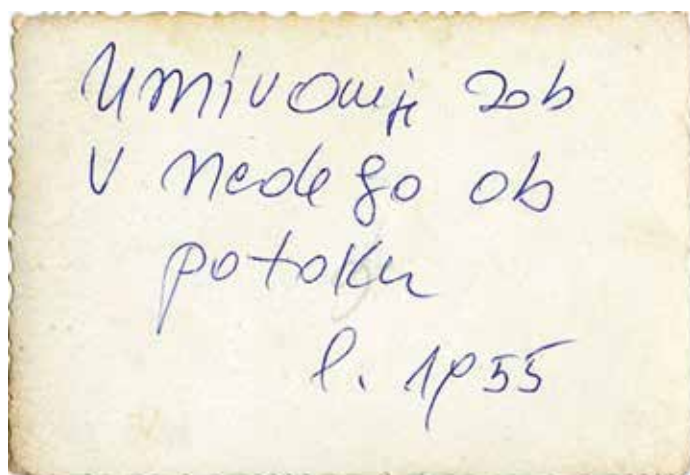 Umivanje zob
v nedeljo ob
potoku
l. 1955